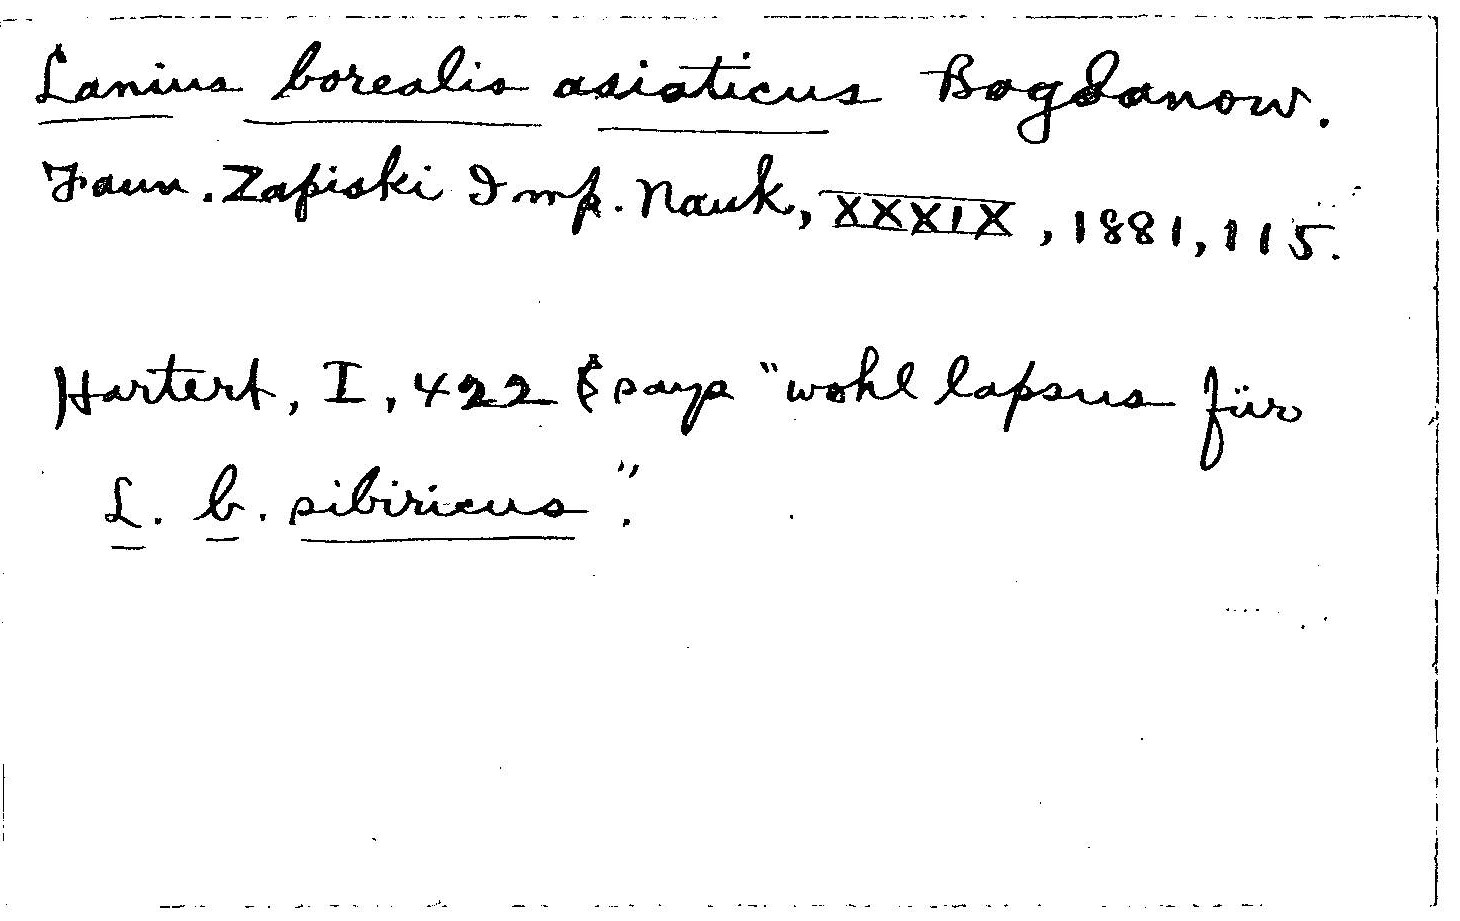 Lanius borealis asiaticus Bogdanow.
Faun. Zapiski Imp. Nauk, XXXIX, 1881, 115.
Hartert, I, 422 says "wohl lapsus für
L. b. sibiricus".